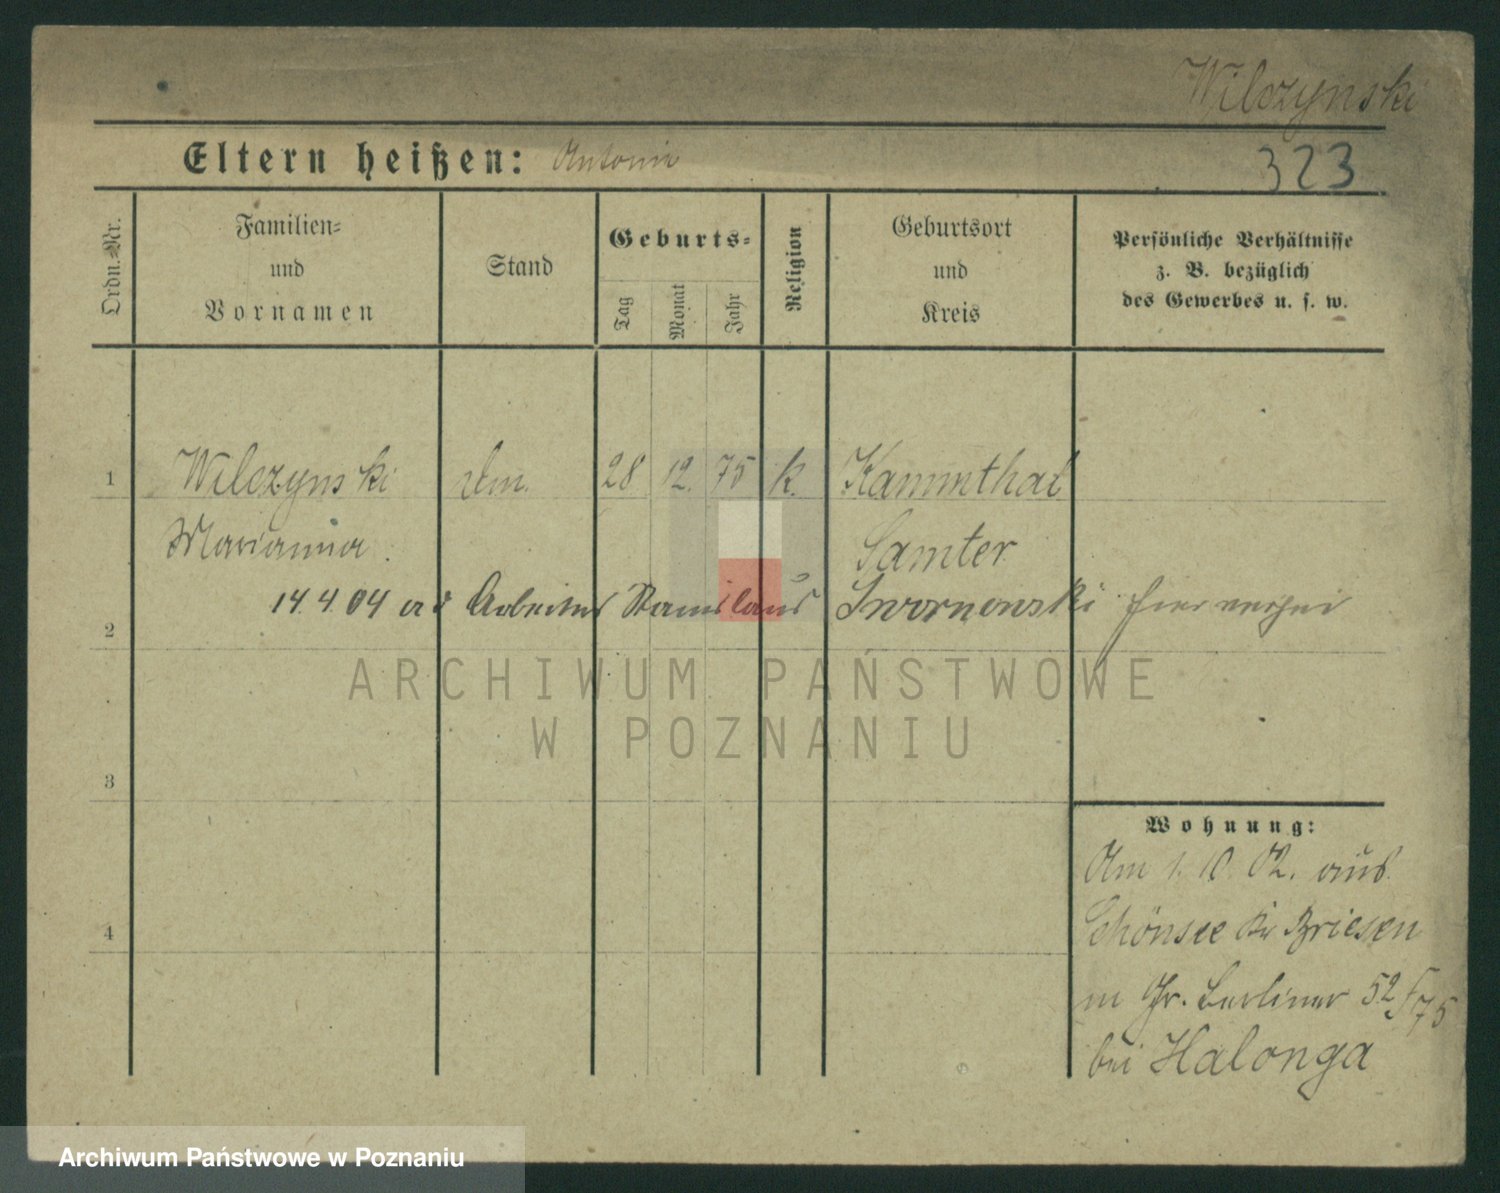 Wilczynski
Eltern heißen: Antonie
323
Ordn.=Nr.
Familien=
und
Vornamen
Stand
Geburts=
Tag
Monat
Jahr
Religion
Geburtsort
und
Kreis
Persönliche Verhältnisse
z. B. bezüglich
des Gewerbes u. s. w.
1 Wilczynski 28 12. 75 k. Kammthal
Marianna Samter
14.4.04 Arbeiter Stanislaus hier
2
ARCHIWUM PAŃSTWOWE
W POZNANIU
3
Wohnung:
Am 1. 10. 02. aus
Schönsee Kr Briesen
in Gr. Berliner 52/75
4
bei Halonga
Archiwum Państwowe w Poznaniu